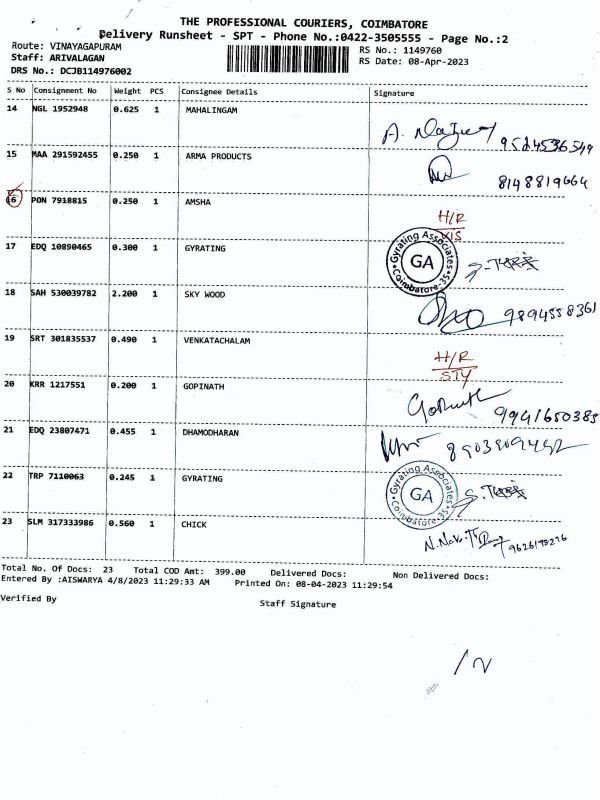 THE PROFESSIONAL COURIERS, COIMBATORE
Delivery Runsheet - SPT - Phone No.:0422-3505555 - Page No.:2
Route: VINAYAGAPURAM
Staff: ARIVALAGAN
DRS No.: DCJB114976002
RS No.: 1149760
RS Date: 08-Apr-2023
S No Consignment No Weight PCS Consignee Details Signature
14 NGL 1952948 0.625 1 MAHALINGAM
9524536549
15 MAA 291592455 0.250 1 ARMA PRODUCTS
8148819664
16 PON 7918815 0.250 1 AMSHA
H/R
17 EDQ 10890465 0.300 1 GYRATING
Gyrating Associates
GA
Coimbatore-35
18 SAH 530039782 2.200 1 SKY WOOD
9894558361
19 SRT 301835537 0.490 1 VENKATACHALAM
H/R
STY
20 KRR 1217551 0.200 1 GOPINATH
9941650385
21 EDQ 23807471 0.455 1 DHAMODHARAN
22 TRP 7110063 0.245 1 GYRATING
Gyrating Associates
GA
Coimbatore-35
23 SLM 317333986 0.560 1 CHICK
Total No. Of Docs: 23 Total COD Amt: 399.00 Delivered Docs: Non Delivered Docs:
Entered By :AISWARYA 4/8/2023 11:29:33 AM Printed On: 08-04-2023 11:29:54
Verified By
Staff Signature